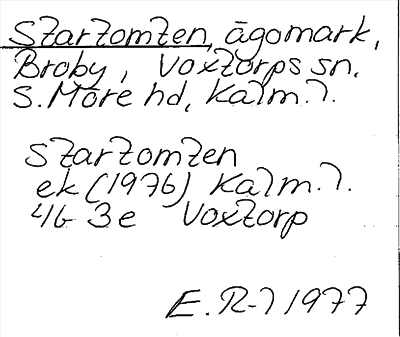 Startomten, ägomark,
Broby, Voxtorps sn,
S. Möre hd, Kalm. l.
Startomten
ek (1976) Kalm. l.
4G 3e Voxtorp
E. R-l 1977